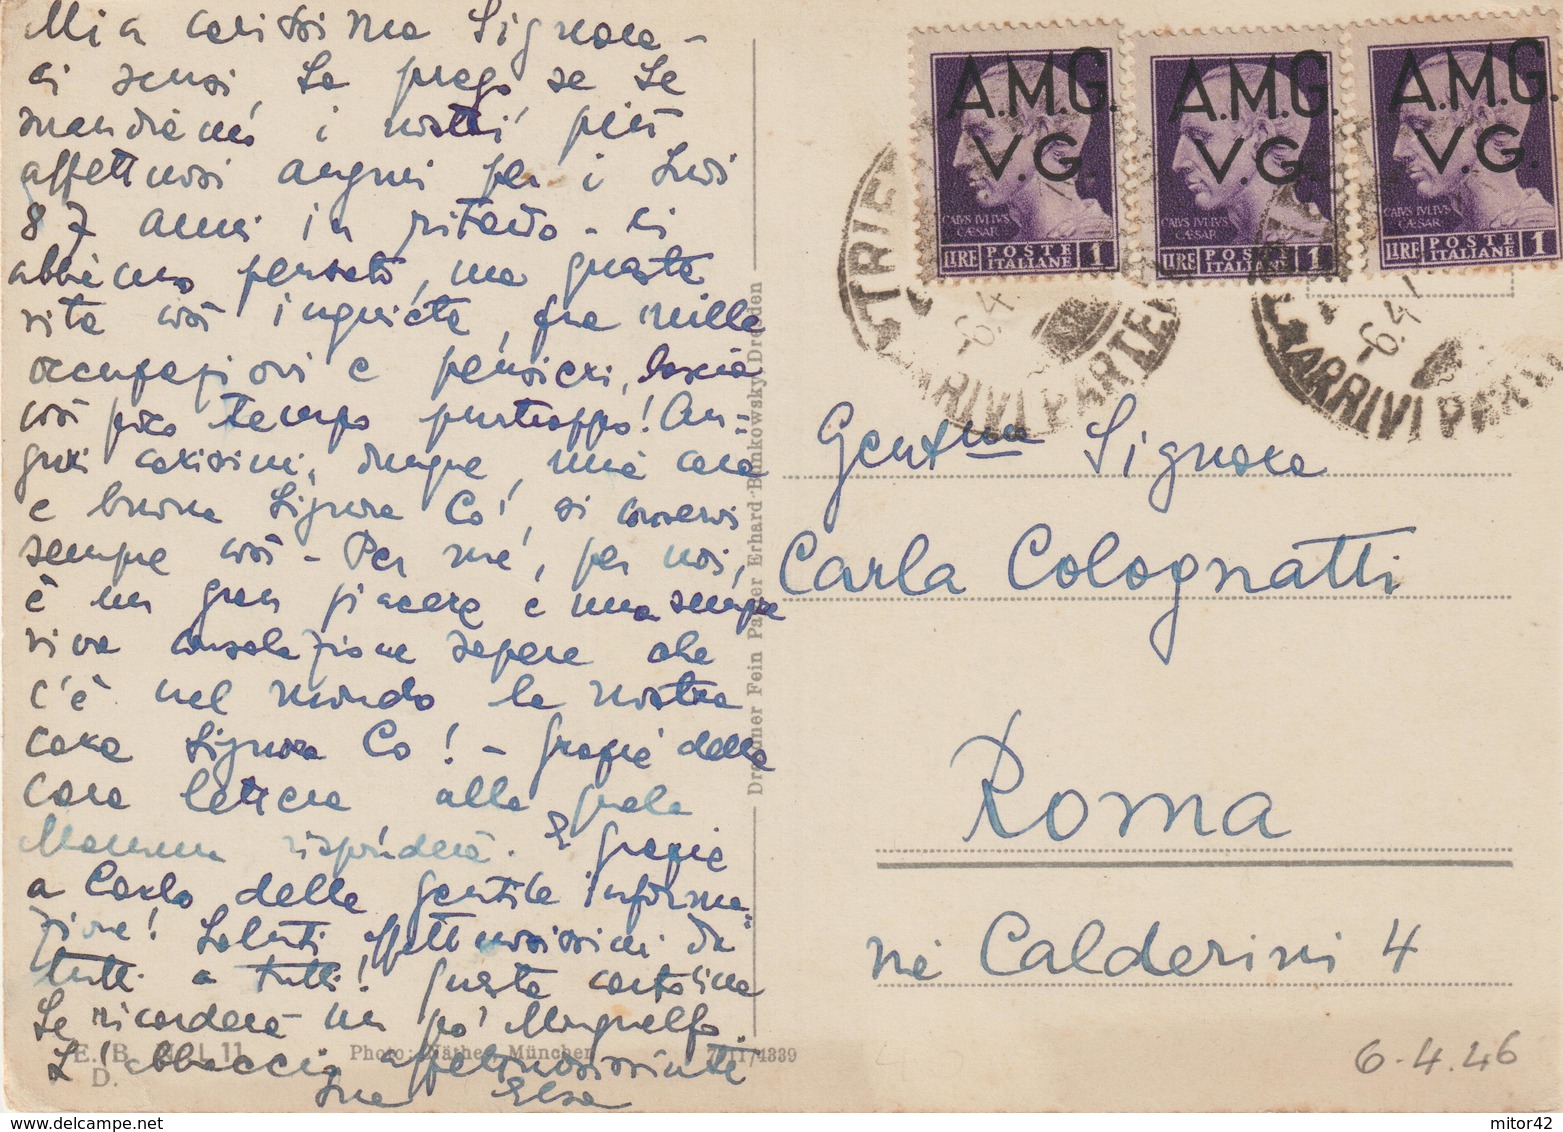 Mia carissima Signora -
ci scusi, La prego se Le
mandiamo i nostri più
affettuosi auguri per i Suoi
87 anni in ritardo - ci
abbiamo pensato, ma questa
vita così inquieta, fra mille
occupazioni e pensieri, lascia
così poco tempo purtroppo! Au-
guri carissimi, dunque, mia cara
e buona Signora Co', si conservi
sempre così - Per me, per noi,
è un gran piacere e una sempre
viva consolazione sapere che
c'è nel mondo la nostra
cara Signora Co'! - Grazie della
cara lettera alla quale
Mamma risponderà. E grazie
a Carlo delle gentili informa
zioni! Saluti affettuosissimi da
tutti a tutti! Questa cartolina
Le ricorderà un po' Monguelfo.
L'abbraccia affettuosissimamente
Sua Elsa
A.M.G.
V.G.
CAIVS IVLIVS
CÆSAR
LIRE POSTE ITALIANE 1
A.M.G.
V.G.
CAIVS IVLIVS
CÆSAR
LIRE POSTE ITALIANE 1
A.M.G.
V.G.
CAIVS IVLIVS
CÆSAR
LIRE POSTE ITALIANE 1
TRIE
-6.4
ARRIVI PARTEN
-6.4
ARRIVI PARTEN
Gentma Signora
Carla Colognatti
Roma
via Calderini 4
6-4.46
Dresdner Fein Papier Erhard Bunkowsky Dresden
E. B. 11
D.
Photo: Näther, München
/4339
mitor42